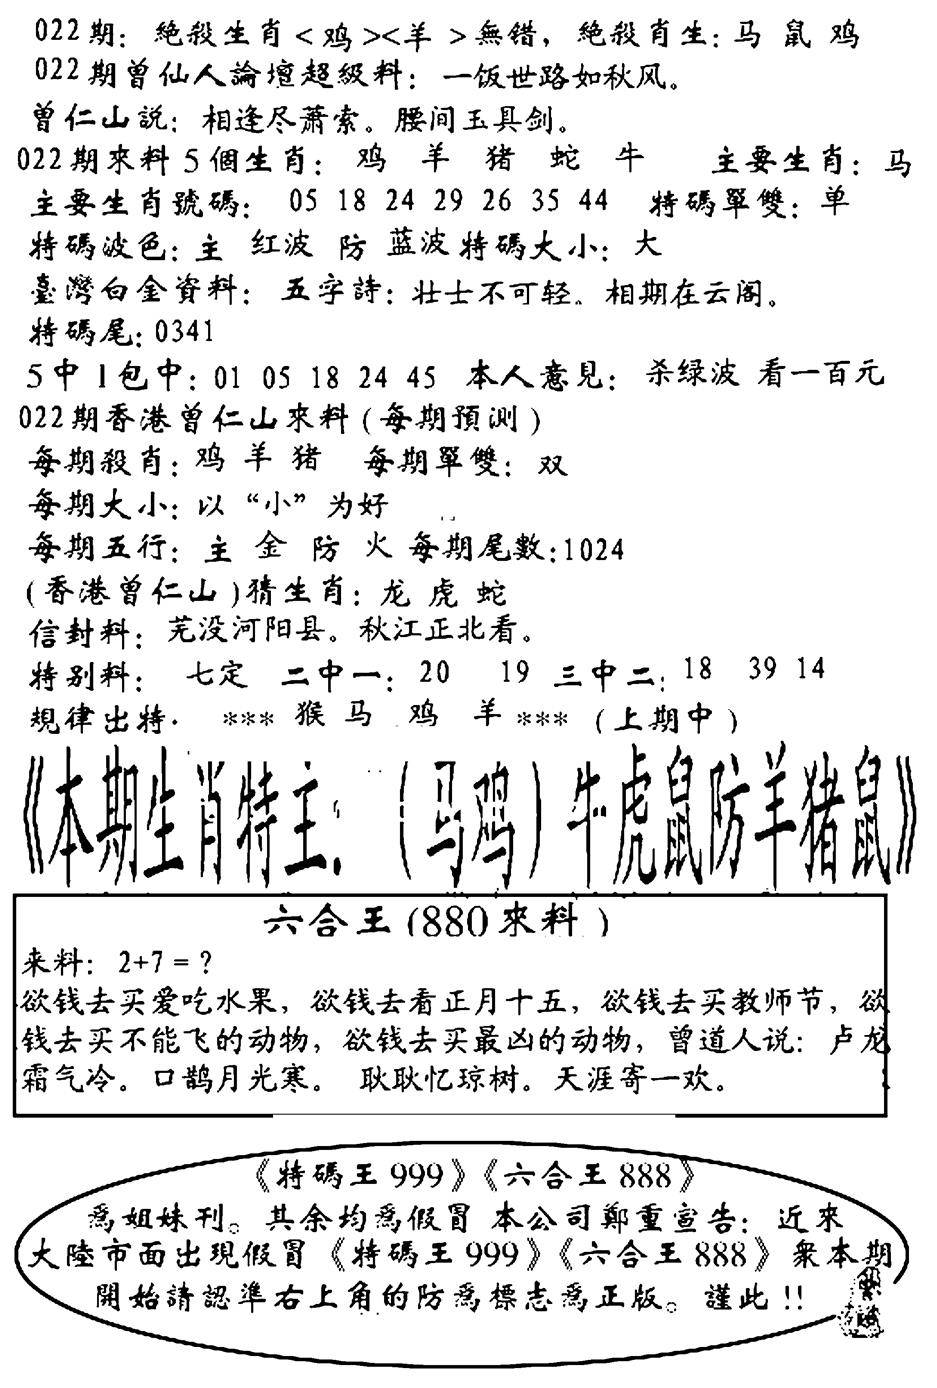 022期：絶殺生肖<鸡><羊>無错，絶殺肖生：马 鼠 鸡
022期曾仙人論壇超級料：一饭世路如秋风。
曾仁山説：相逢尽萧索。腰间玉具剑。
022期來料5個生肖：鸡 羊 猪 蛇 牛 主要生肖：马
主要生肖號碼：05 18 24 29 26 35 44 特碼單雙：单
特碼波色：主 红波 防 蓝波特碼大小：大
臺灣白金資料：五字詩：壮士不可轻。相期在云阁。
特碼尾：0341
5中1包中：01 05 18 24 45 本人意見：杀绿波 看一百元
022期香港曾仁山來料(每期預测)
每期殺肖：鸡 羊 猪 每期單雙：双
每期大小：以“小”为好
每期五行：主 金 防 火 每期尾數：1024
(香港曾仁山)猜生肖：龙 虎 蛇
信封料：芜没河阳县。秋江正北看。
特别料：七定 二中一：20 19 三中二：18 39 14
規律出特· *** 猴 马 鸡 羊 *** (上期中)
《本期生肖特主：(马鸡)牛虎鼠防羊猪鼠》
六合王(880來料)
来料：2+7=？
欲钱去买爱吃水果，欲钱去看正月十五，欲钱去买教师节，欲
钱去买不能飞的动物，欲钱去买最凶的动物，曾道人说：卢龙
霜气冷。口鹊月光寒。 耿耿忆琼树。天涯寄一欢。
《特碼王999》《六合王888》
爲姐妹刊。其余均爲假冒 本公司鄭重宣告：近來
大陸市面出現假冒《特碼王999》《六合王888》衆本期
開始請認準右上角的防爲標志爲正版。謹此!!